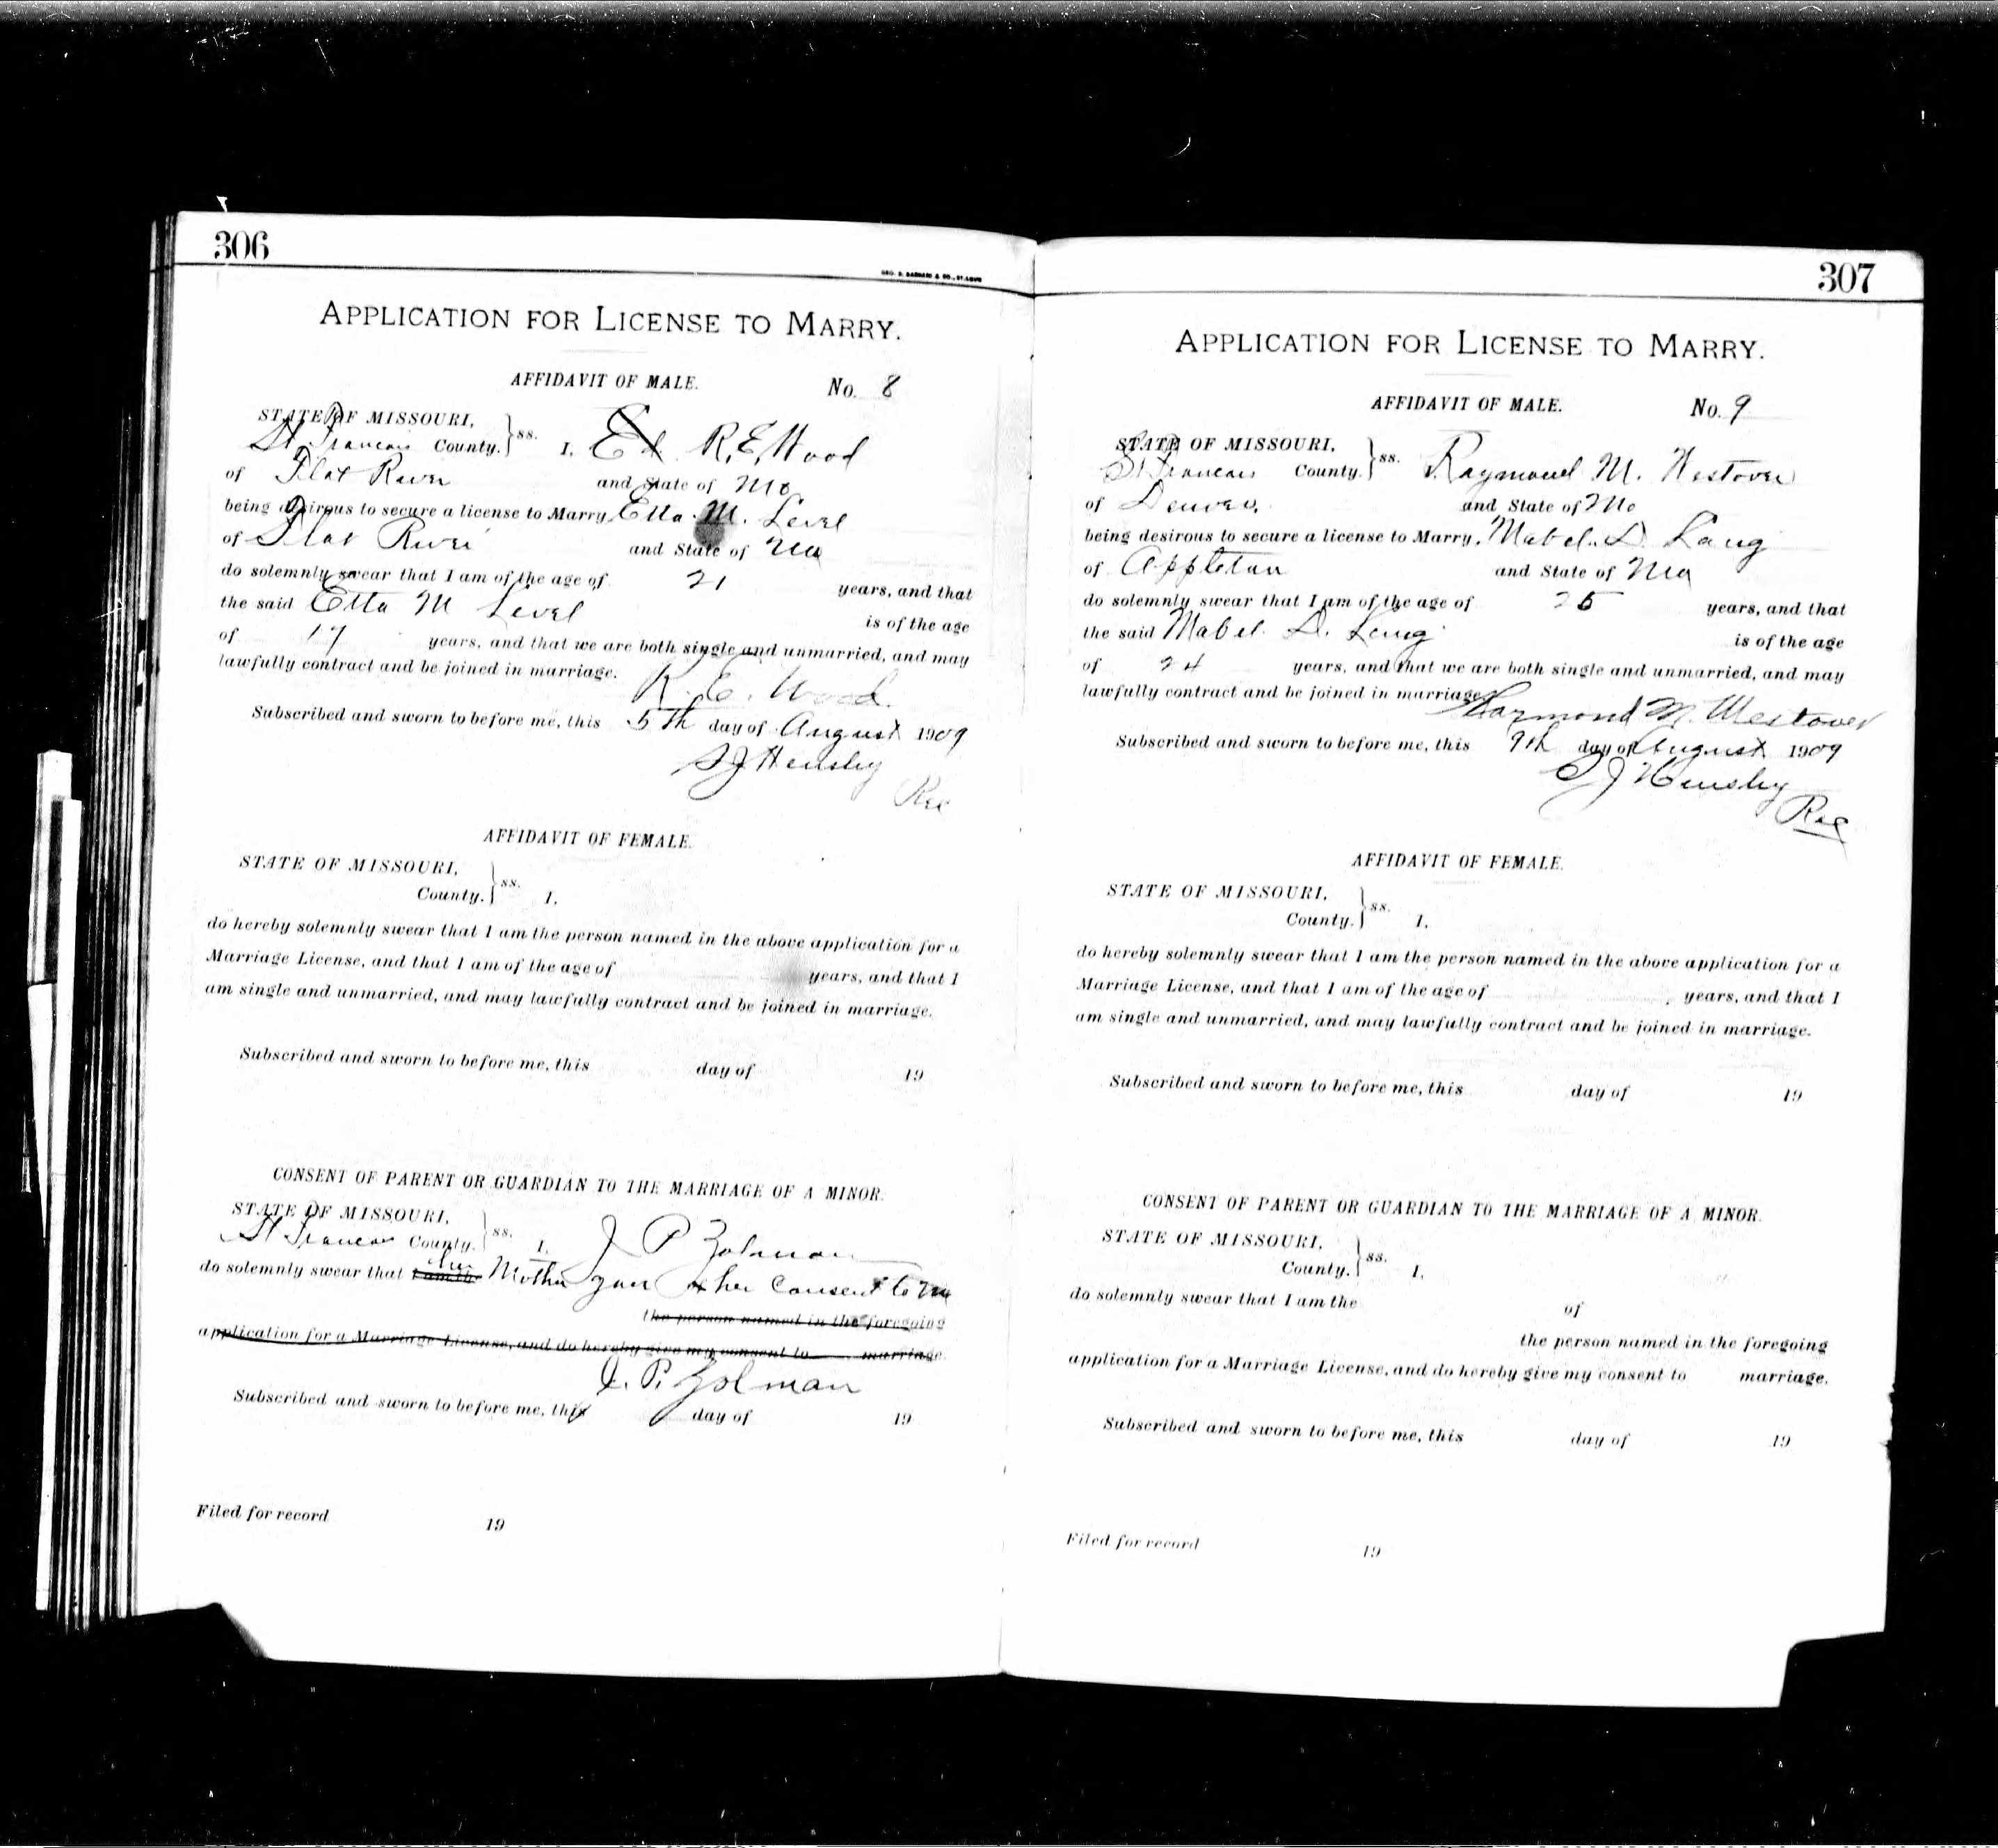 306
GEO. D. BARNARD & CO., ST. LOUIS
APPLICATION FOR LICENSE TO MARRY.
AFFIDAVIT OF MALE. No. 8
STATE OF MISSOURI,
St Francois County. } ss. I, Ed R. E. Wood
of Flat River and State of Mo
being desirous to secure a license to Marry Etta M. Level
of Flat River and State of Mo
do solemnly swear that I am of the age of 21 years, and that
the said Etta M Level is of the age
of 17 years, and that we are both single and unmarried, and may
lawfully contract and be joined in marriage.
R. E. Wood.
Subscribed and sworn to before me, this 5th day of August 1909
S J Hensley
Rec
AFFIDAVIT OF FEMALE.
STATE OF MISSOURI,
County. } ss. I,
do hereby solemnly swear that I am the person named in the above application for a
Marriage License, and that I am of the age of years, and that I
am single and unmarried, and may lawfully contract and be joined in marriage.
Subscribed and sworn to before me, this day of 19
CONSENT OF PARENT OR GUARDIAN TO THE MARRIAGE OF A MINOR.
STATE OF MISSOURI,
St Francois County. } ss. I, J P Zolman
do solemnly swear that I am the Mother her Consent to
the person named in the foregoing
application for a Marriage License, and do hereby give my consent to marriage.
J. P. Zolman
Subscribed and sworn to before me, this day of 19
Filed for record 19
307
APPLICATION FOR LICENSE TO MARRY.
AFFIDAVIT OF MALE. No. 9
STATE OF MISSOURI,
St Francois County. } ss. Raymond M. Westover
of Denver, and State of Mo
being desirous to secure a license to Marry, Mabel. D. Lang
of Appleton and State of Mo
do solemnly swear that I am of the age of 25 years, and that
the said Mabel. D. Lang is of the age
of 24 years, and that we are both single and unmarried, and may
lawfully contract and be joined in marriage.
Raymond M. Westover
Subscribed and sworn to before me, this 9th day of August 1909
S J Hensley
Rec
AFFIDAVIT OF FEMALE.
STATE OF MISSOURI,
County. } ss. I,
do hereby solemnly swear that I am the person named in the above application for a
Marriage License, and that I am of the age of years, and that I
am single and unmarried, and may lawfully contract and be joined in marriage.
Subscribed and sworn to before me, this day of 19
CONSENT OF PARENT OR GUARDIAN TO THE MARRIAGE OF A MINOR.
STATE OF MISSOURI,
County. } ss. I,
do solemnly swear that I am the of
the person named in the foregoing
application for a Marriage License, and do hereby give my consent to marriage.
Subscribed and sworn to before me, this day of 19
Filed for record 19